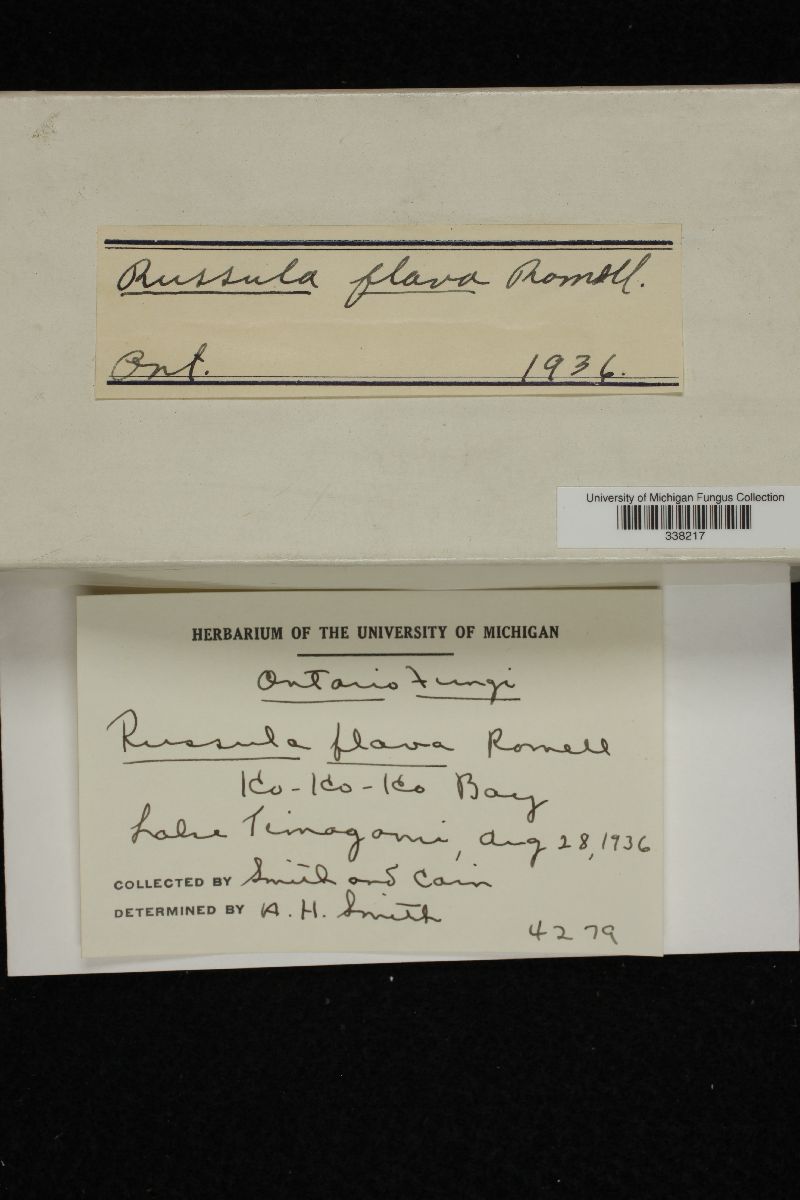 Russula flava Romell.
Ont. 1936.
University of Michigan Fungus Collection
338217
HERBARIUM OF THE UNIVERSITY OF MICHIGAN
Ontario Fungi
Russula flava Romell
Ko-Ko-Ko Bay
Lake Timagami, Aug 28, 1936
COLLECTED BY Smith and Cain
DETERMINED BY A. H. Smith
4279